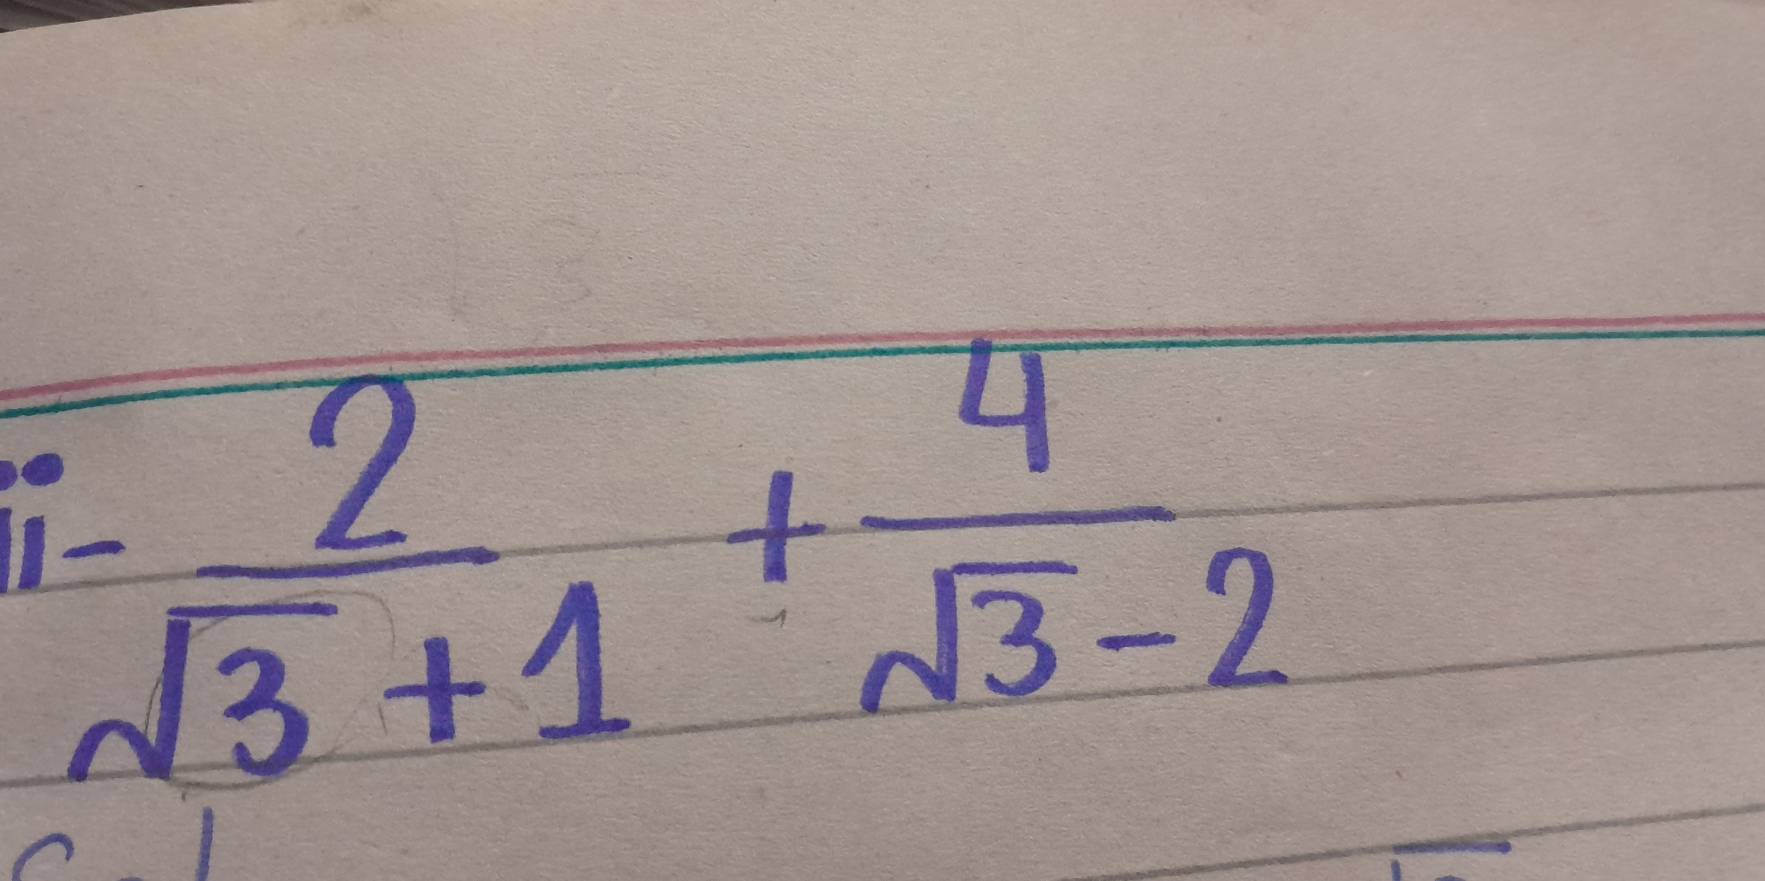 ii- 2/(√3 + 1) + 4/(√3 - 2)